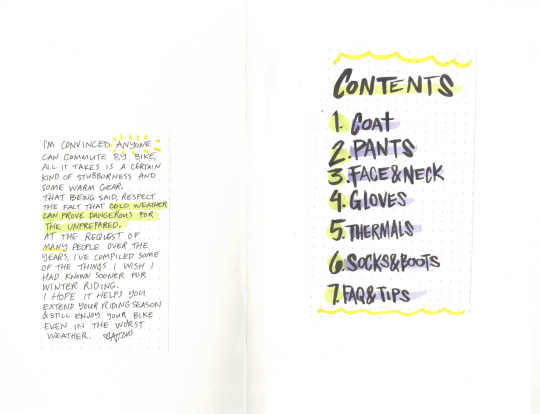 I'M CONVINCED ANYONE
CAN COMMUTE BY BIKE,
ALL IT TAKES IS A CERTAIN
KIND OF STUBBORNESS AND
SOME WARM GEAR.
THAT BEING SAID, RESPECT
THE FACT THAT COLD WEATHER
CAN PROVE DANGEROUS FOR
THE UNPREPARED.
AT THE REQUEST OF
MANY PEOPLE OVER THE
YEARS, I'VE COMPILED SOME
OF THE THINGS I WISH I
HAD KNOWN SOONER FOR
WINTER RIDING.
I HOPE IT HELPS YOU
EXTEND YOUR RIDING SEASON
& STILL ENJOY YOUR BIKE
EVEN IN THE WORST
WEATHER.
CONTENTS
1. COAT
2. PANTS
3. FACE & NECK
4. GLOVES
5. THERMALS
6. SOCKS & BOOTS
7. FAQ & TIPS